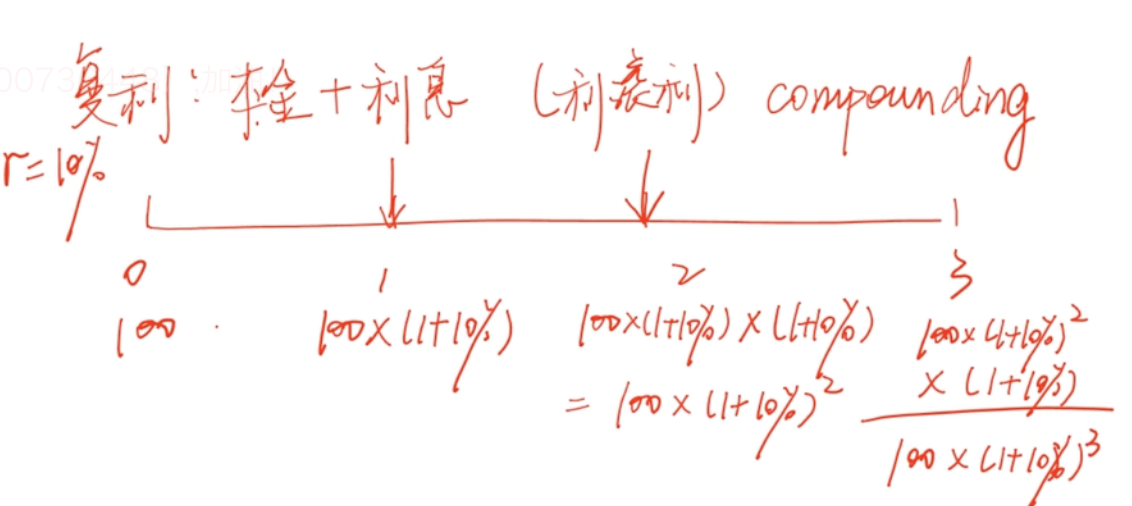 复利：本金+利息 （利滚利） compounding
r=10%
0 1 2 3
100 100×(1+10%) 100×(1+10%)×(1+10%) 100×(1+10%)²
=100×(1+10%)² ×(1+10%)
100×(1+10%)³